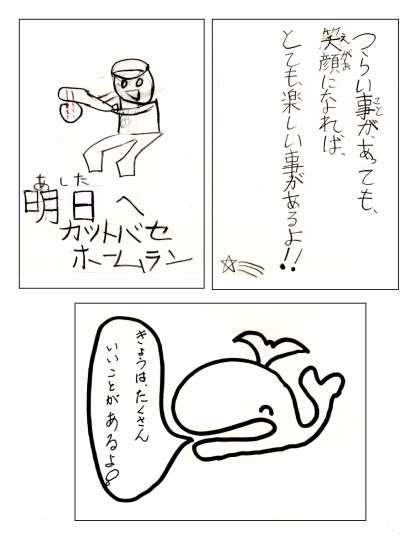 あした
明日へ
カットバセ
ホームラン
つらい事があっても、
こと
笑顔になれば、
えがお
とても楽しい事があるよ!!
きょうは、たくさん
いいことがあるよ。